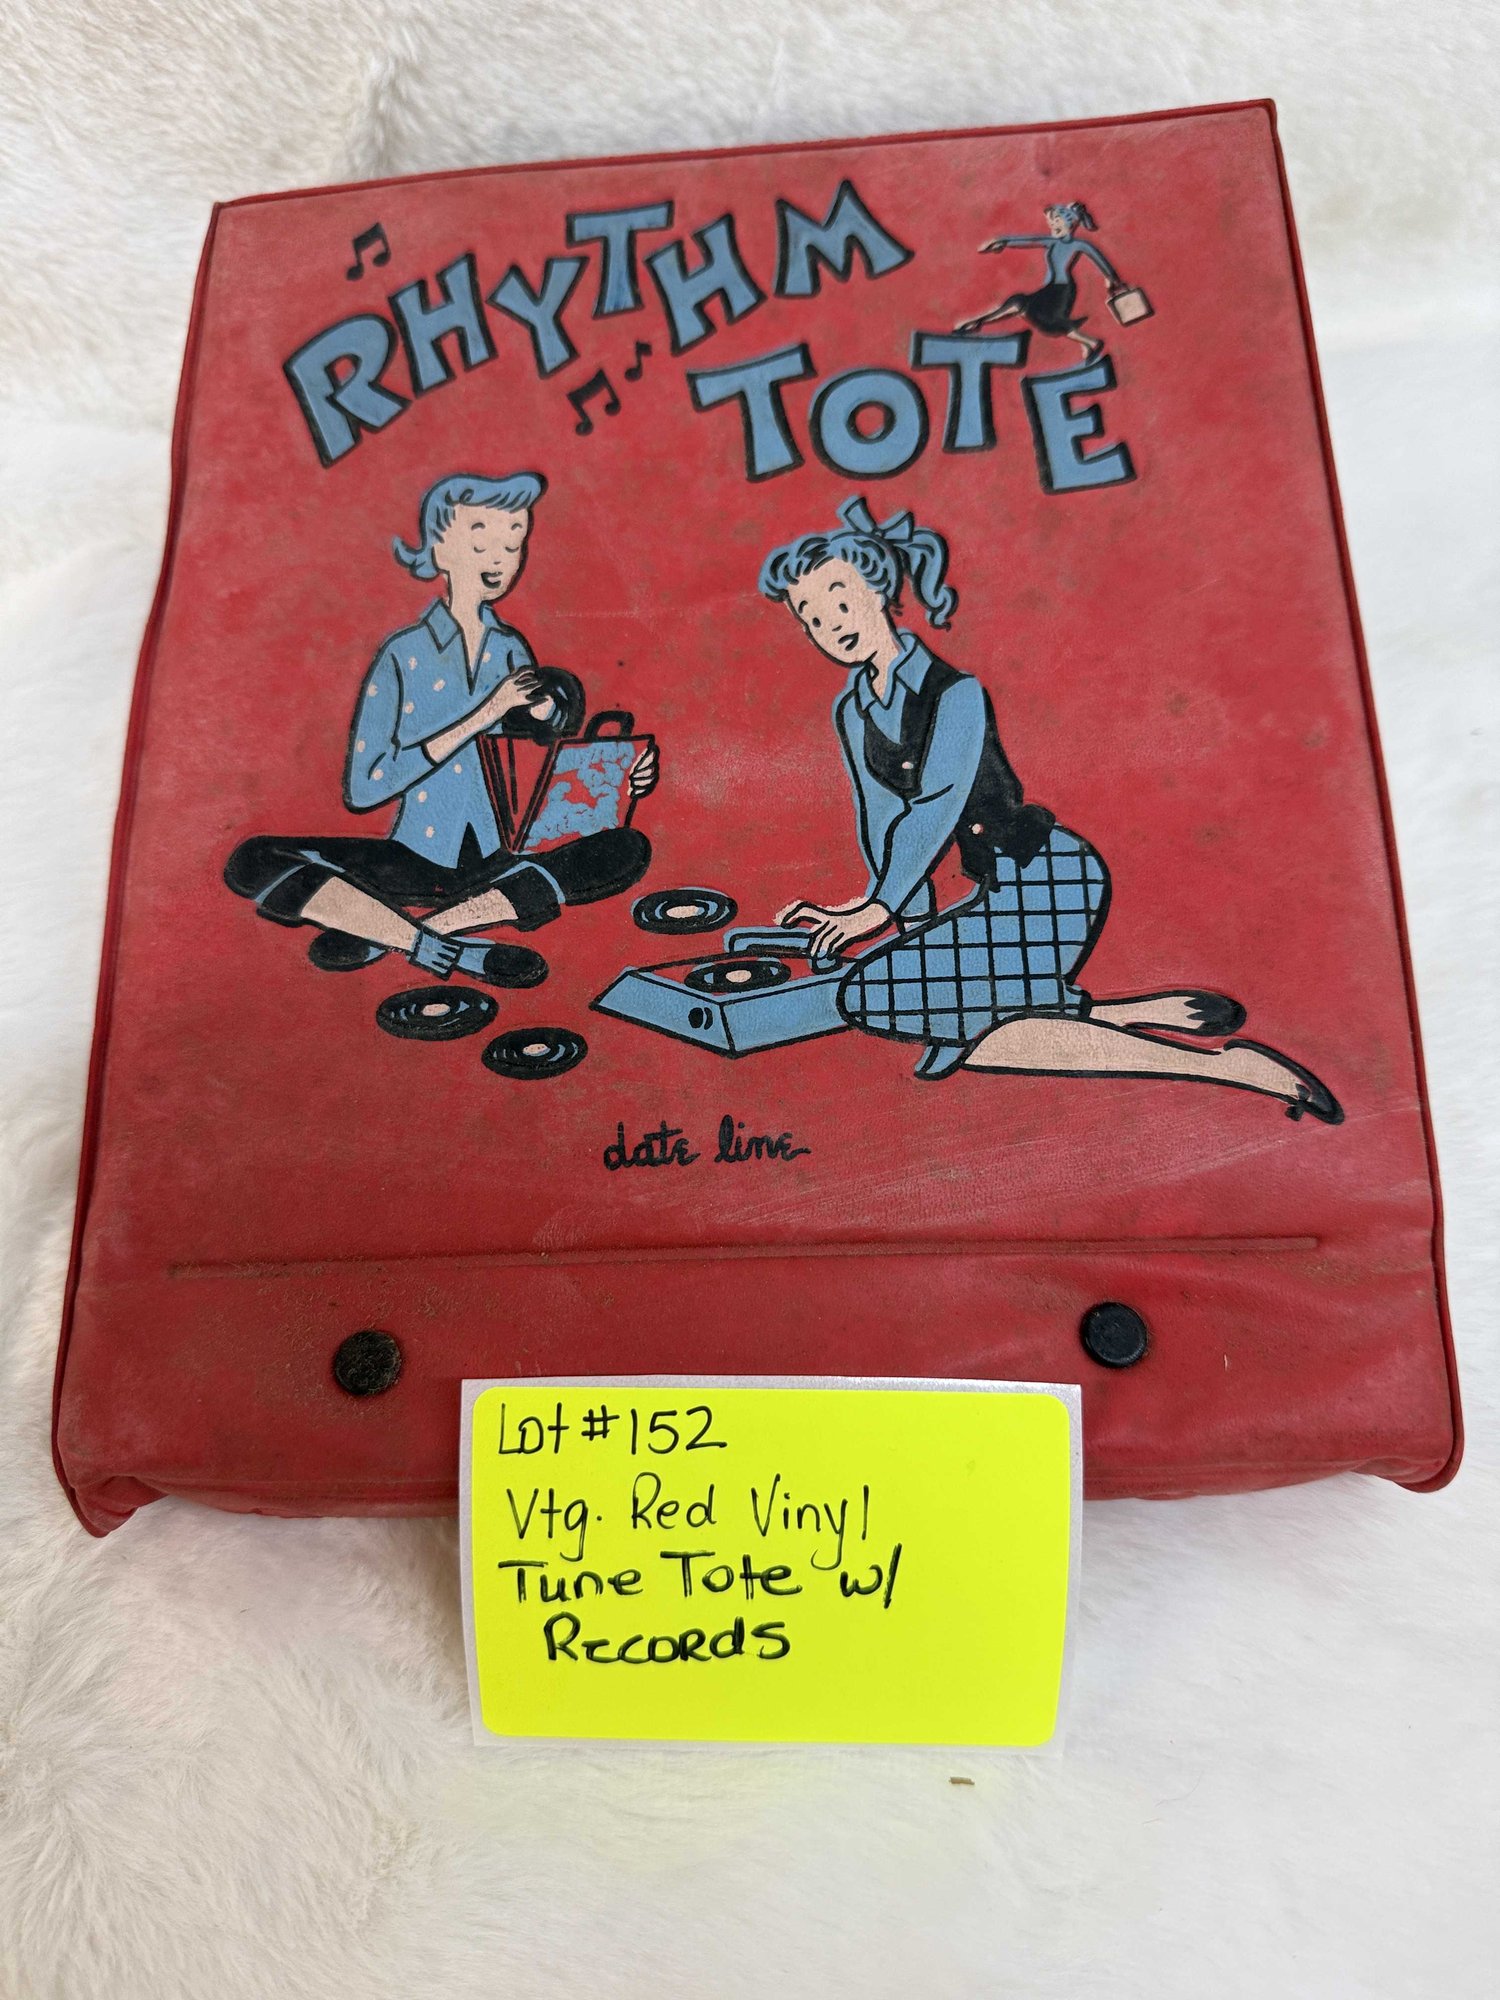 RHYTHM
TOTE
date line
Lot #152
Vtg. Red Vinyl
Tune Tote w/
Records